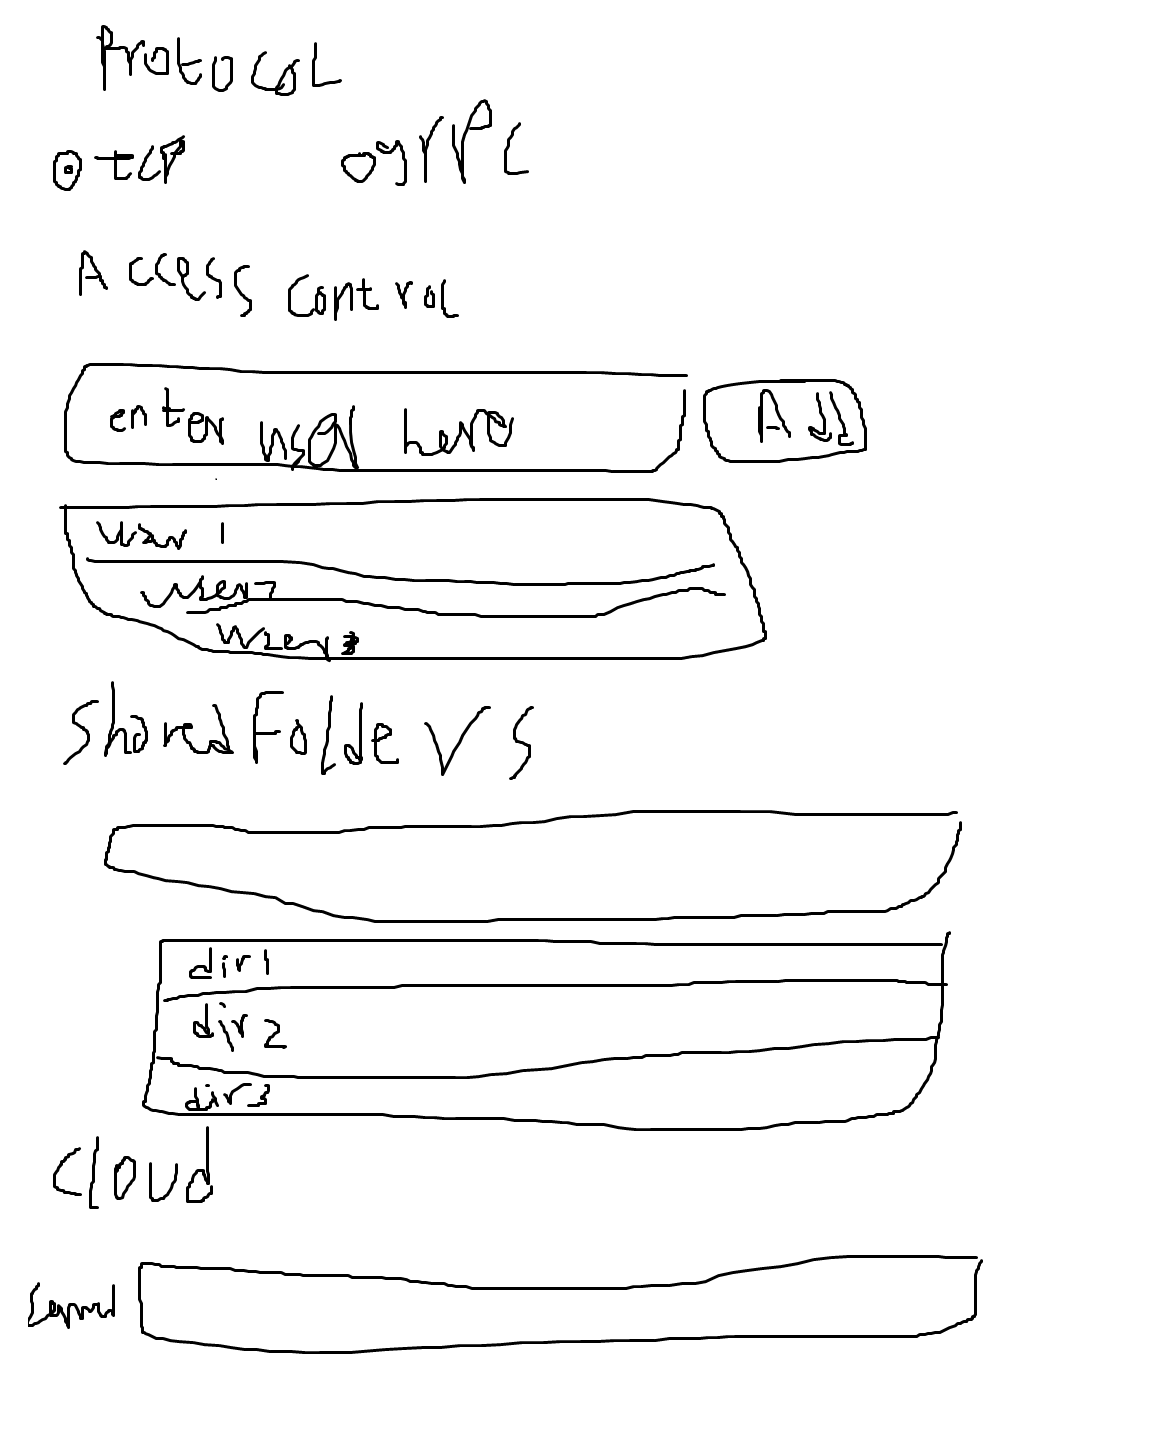 Protocol
tcp grpc
Access control
enter user here Add
user 1
user 2
user 3
Shared Folders
dir1
dir 2
dir3
Cloud